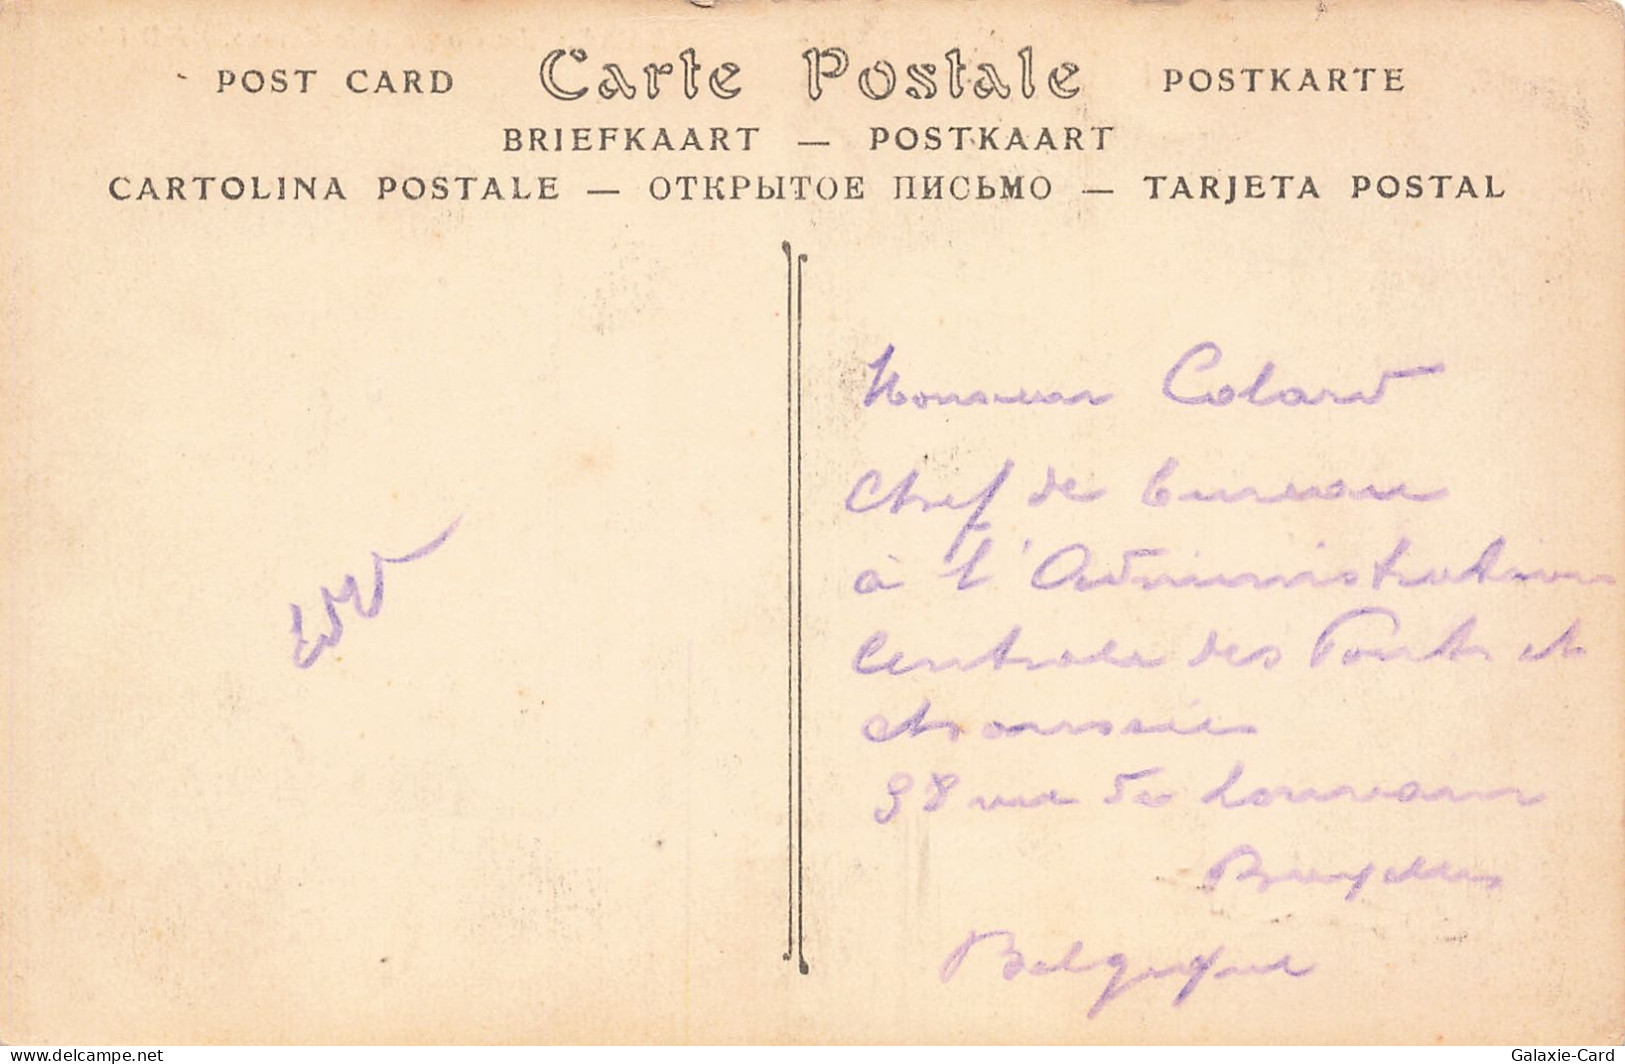 POST CARD Carte Postale POSTKARTE
BRIEFKAART — POSTKAART
CARTOLINA POSTALE — ОТКРЫТОЕ ПИСЬМО — TARJETA POSTAL
Monsieur Colard
Chef de bureau
à l'Administration
Centrale des Ponts et
chaussées
98 rue de Louvain
Bruxelles
Belgique
www.delcampe.net
Galaxie-Card